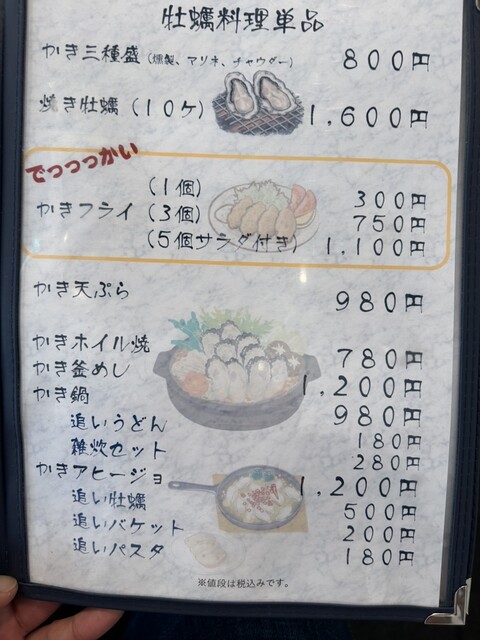 牡蠣料理単品
かき三種盛(燻製、マリネ、チャウダー) 800円
焼き牡蠣(10ケ) 1,600円
でっっっかい
(1個) 300円
かきフライ(3個) 750円
(5個サラダ付き) 1,100円
かき天ぷら 980円
かきホイル焼 780円
かき釜めし 1,200円
かき鍋 980円
追いうどん 180円
雑炊セット 280円
かきアヒージョ 1,200円
追い牡蠣 500円
追いバケット 200円
追いパスタ 180円
※値段は税込みです。